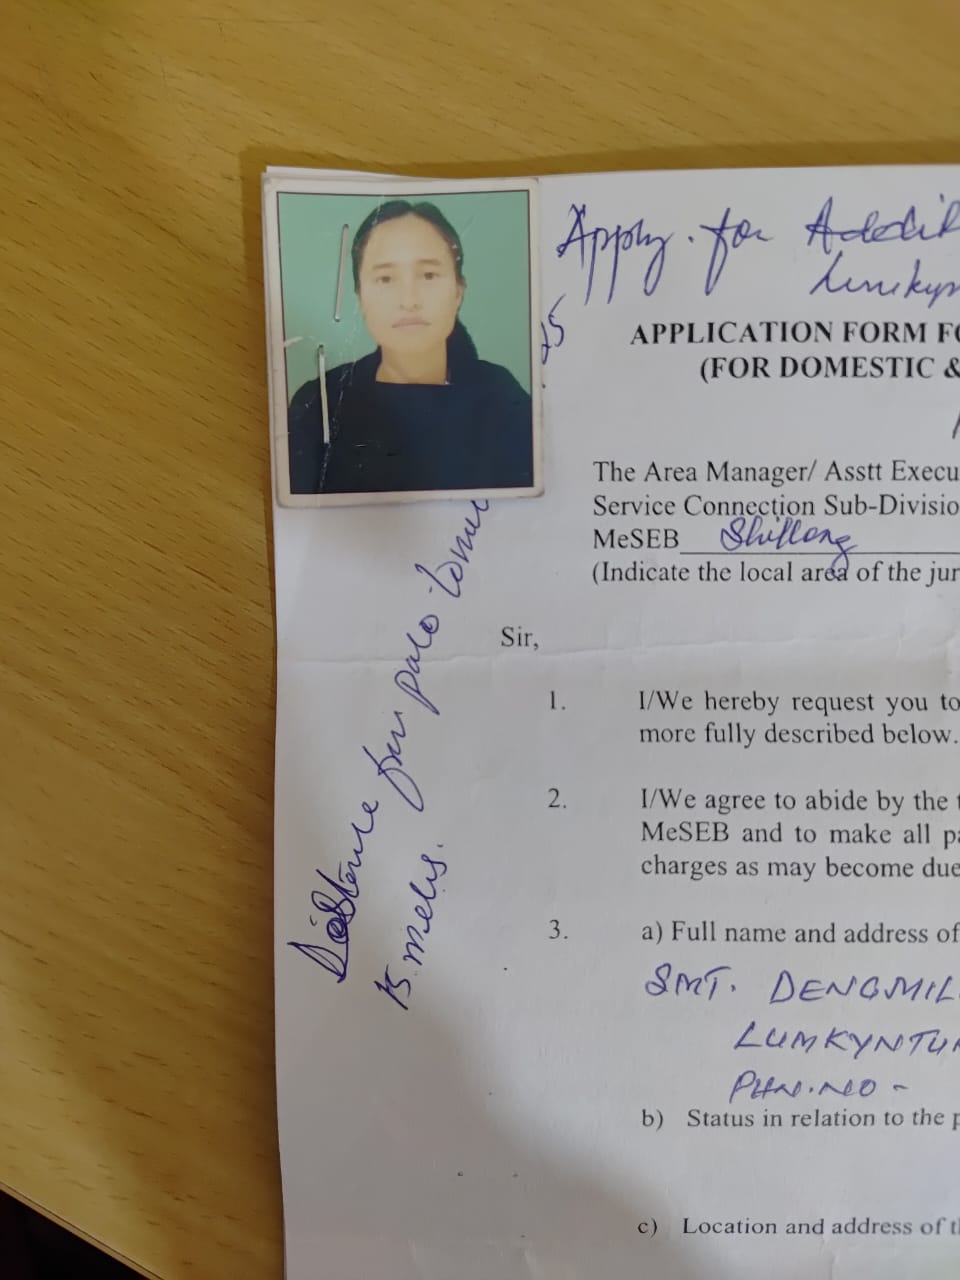 Apply. for Addit
Lumkyn
25
APPLICATION FORM FO
(FOR DOMESTIC &
The Area Manager/ Asstt Execu
Service Connection Sub-Divisio
MeSEB Shillong
(Indicate the local area of the jur
Sir,
1. I/We hereby request you to
more fully described below.
2. I/We agree to abide by the t
MeSEB and to make all pa
charges as may become due
3. a) Full name and address of
SMT. DENGMIL
LUMKYNTUN
PHN.NO -
b) Status in relation to the p
c) Location and address of th
Distance
15